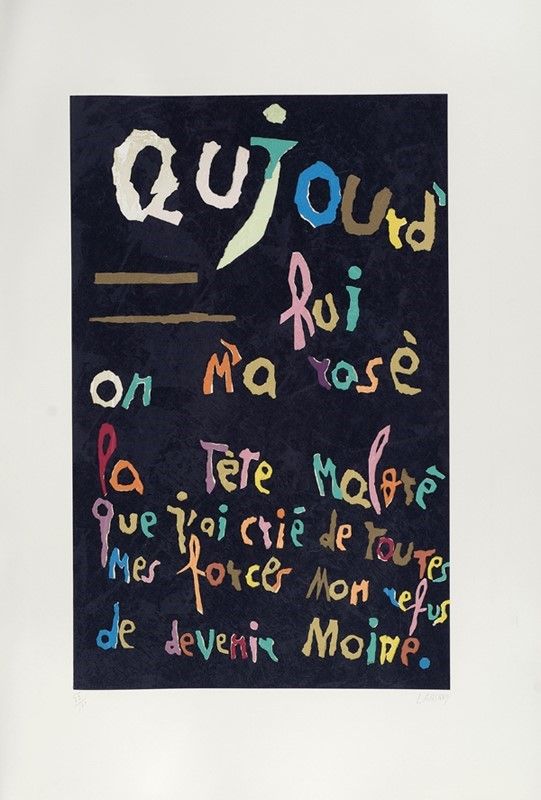 Qujourd'
hui
on m'a rosè
la Tète malgrè
que j'ai crié de toutes
mes forces mon refus
de devenir Moine.